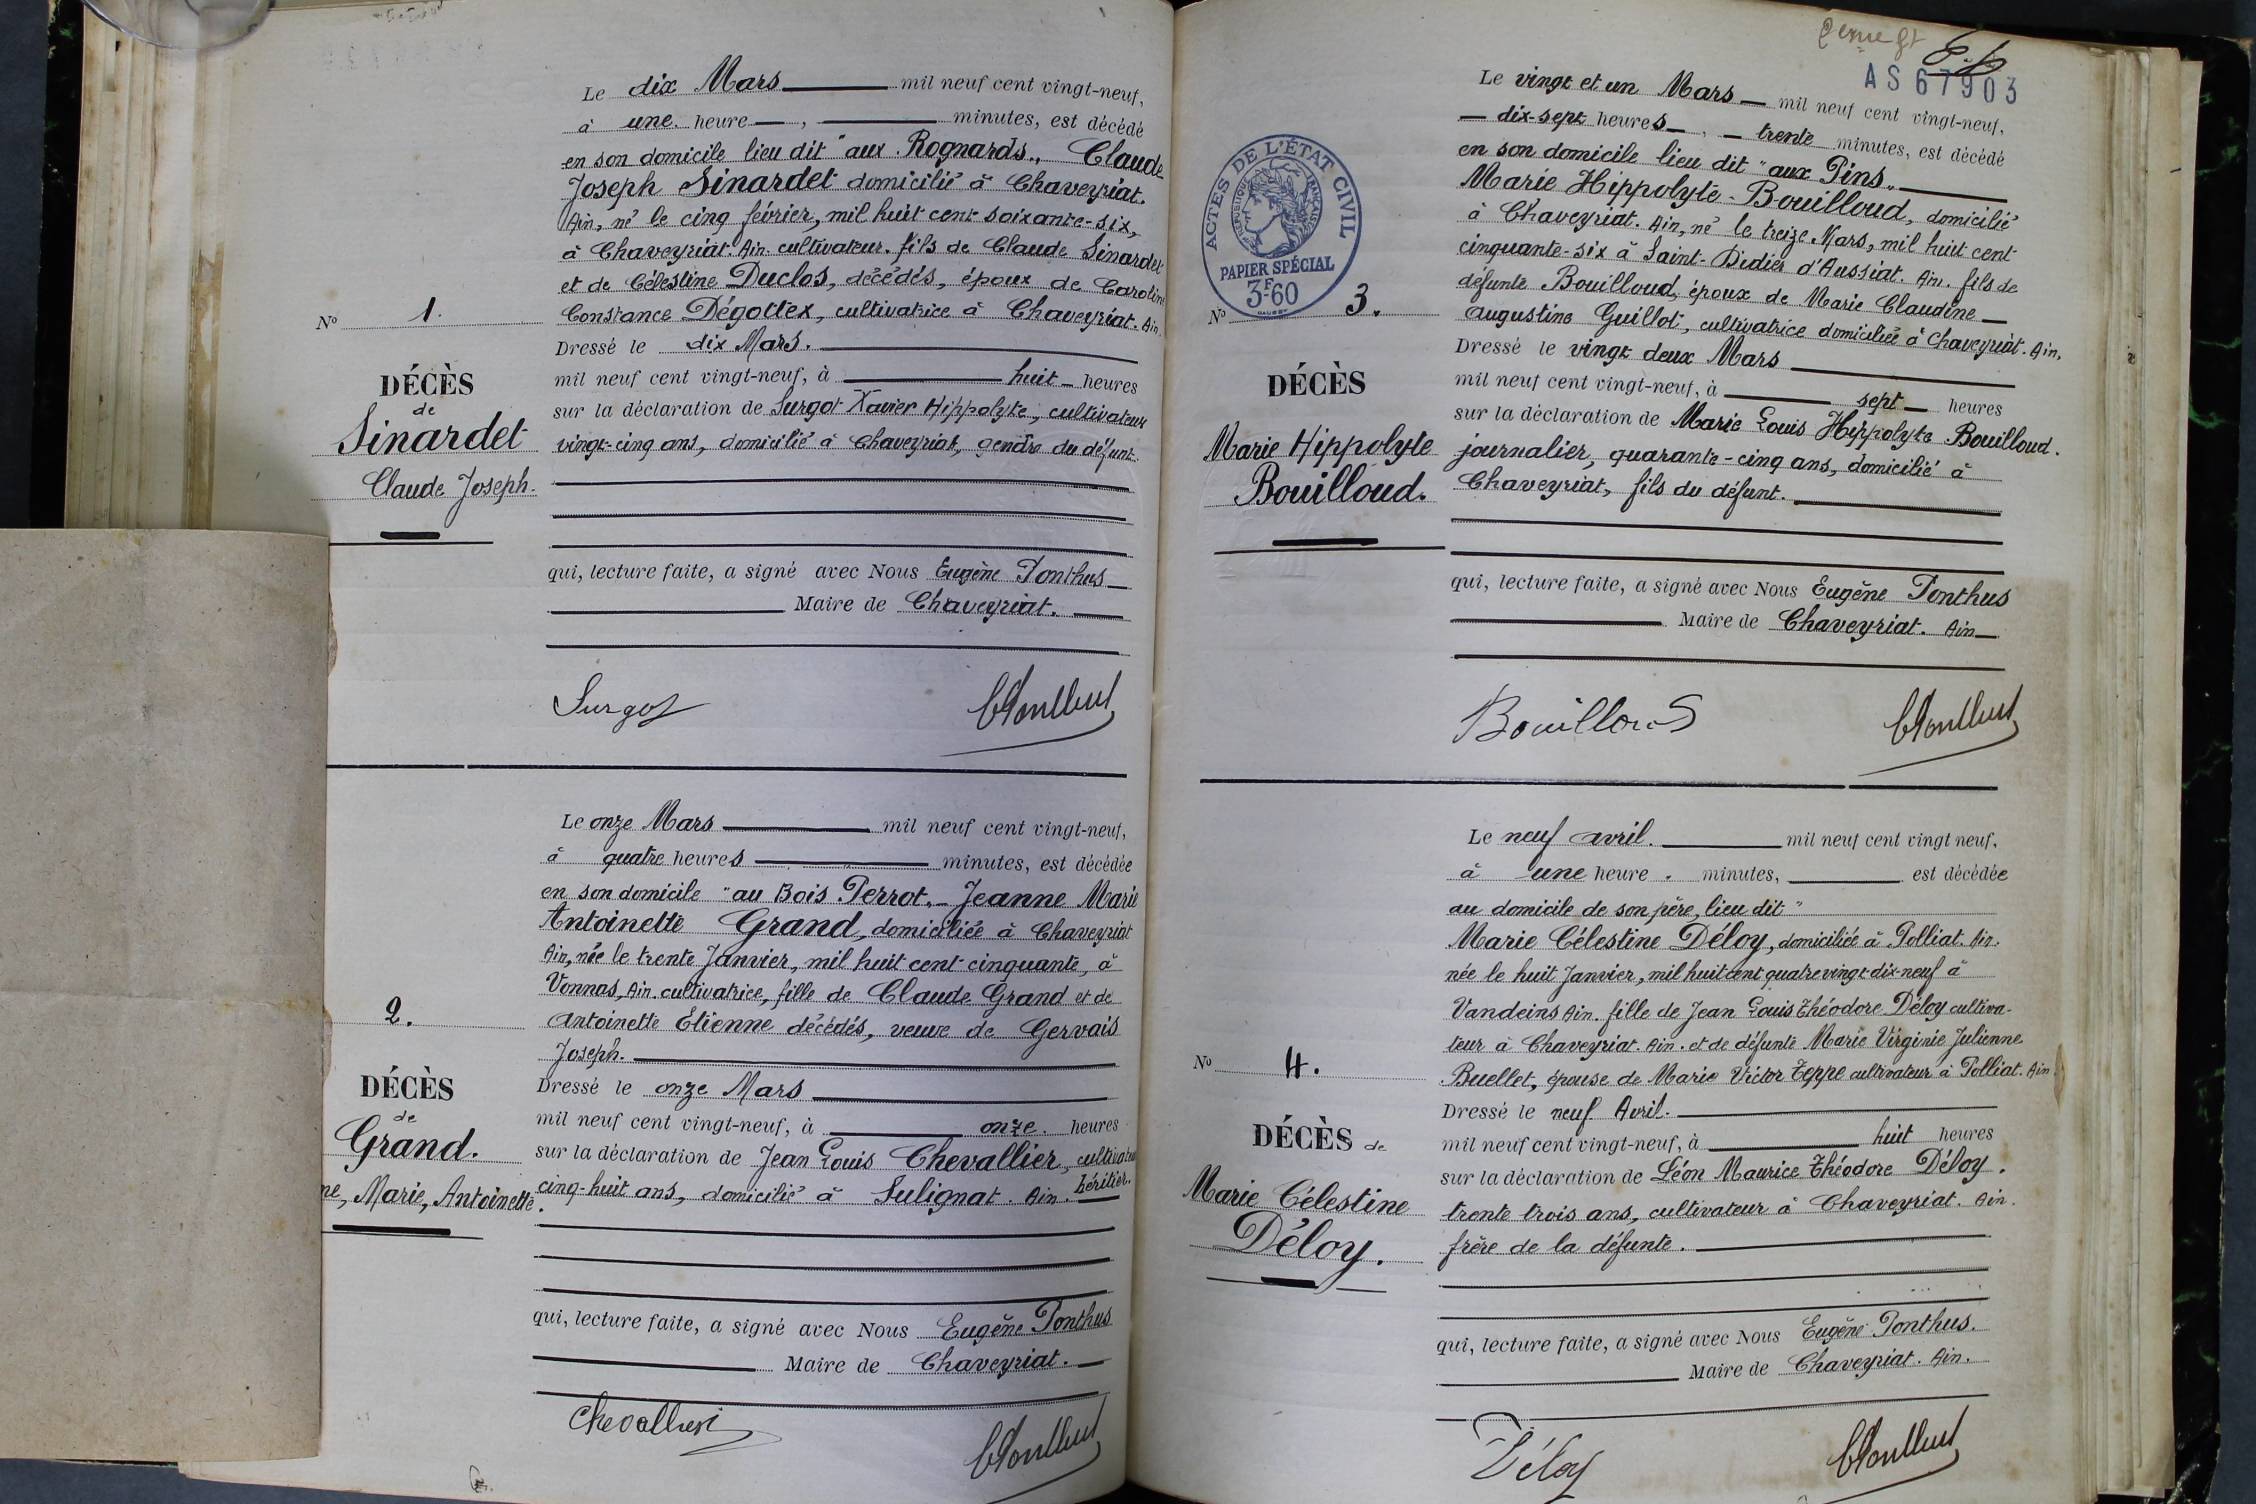 Le dix Mars mil neuf cent vingt-neuf,
à une heure , minutes, est décédé
en son domicile lieu dit "aux Rognards", Claude
Joseph Sinardet domicilié à Chaveyriat.
Ain, né le cinq février, mil huit cent soixante-six,
à Chaveyriat. Ain. cultivateur. fils de Claude Sinardet
et de Célestine Duclos, décédés, époux de Caroline
Constance Dégottex, cultivatrice à Chaveyriat. Ain.
Dressé le dix Mars.
mil neuf cent vingt-neuf, à huit heures
sur la déclaration de Surgot Xavier Hippolyte, cultivateur
vingt-cinq ans, domicilié à Chaveyriat, gendre du défunt
qui, lecture faite, a signé avec Nous Eugène Ponthus
Maire de Chaveyriat.
Surgot
N° 1.
DÉCÈS
de
Sinardet
Claude Joseph.
Le onze Mars mil neuf cent vingt-neuf,
à quatre heures minutes, est décédée
en son domicile "au Bois Perrot", Jeanne Marie
Antoinette Grand, domiciliée à Chaveyriat
Ain, née le trente Janvier, mil huit cent cinquante, à
Vonnas, Ain. cultivatrice, fille de Claude Grand et de
Antoinette Etienne décédés, veuve de Gervais
Joseph.
Dressé le onze Mars
mil neuf cent vingt-neuf, à onze. heures
sur la déclaration de Jean Louis Chevallier, cultivateur
cinq-huit ans, domicilié à Sulignat. Ain. héritier.
qui, lecture faite, a signé avec Nous Eugène Ponthus
Maire de Chaveyriat.
Chevallier
2.
DÉCÈS
de
Grand.
ne, Marie, Antoinette.
AS 67903
ACTES DE L'ÉTAT CIVIL
RÉPUBLIQUE FRANÇAISE
PAPIER SPÉCIAL
3F60
Le vingt et un Mars mil neuf cent vingt-neuf,
dix-sept heures, trente minutes, est décédé
en son domicile lieu dit "aux Pins"
Marie Hippolyte Bouilloud, domicilié
à Chaveyriat. Ain, né le treize Mars, mil huit cent
cinquante-six à Saint-Didier d'Aussiat. Ain. fils de
défunte Bouilloud, époux de Marie Claudine
Augustine Guillot, cultivatrice domiciliée à Chaveyriat. Ain,
Dressé le vingt deux Mars
mil neuf cent vingt-neuf, à sept heures
sur la déclaration de Marie Louis Hippolyte Bouilloud.
journalier, quarante-cinq ans, domicilié à
Chaveyriat, fils du défunt.
qui, lecture faite, a signé avec Nous Eugène Ponthus
Maire de Chaveyriat. Ain
Bouilloud
N° 3.
DÉCÈS
Marie Hippolyte
Bouilloud.
Le neuf avril. mil neuf cent vingt neuf,
à une heure . minutes, est décédée
au domicile de son père, lieu dit "
Marie Célestine Déloy, domiciliée à Polliat. Ain.
née le huit Janvier, mil huit cent quatre vingt dix-neuf à
Vandeins Ain. fille de Jean Louis Théodore Déloy cultiva-
teur à Chaveyriat. Ain. et de défunte Marie Virginie Julienne
Buellet, épouse de Marie Victor Teppe cultivateur à Polliat. Ain.
Dressé le neuf Avril.
mil neuf cent vingt-neuf, à huit heures
sur la déclaration de Léon Maurice Théodore Déloy.
trente trois ans, cultivateur à Chaveyriat. Ain.
frère de la défunte.
qui, lecture faite, a signé avec Nous Eugène Ponthus.
Maire de Chaveyriat. Ain.
Déloy
N° 4.
DÉCÈS de
Marie Célestine
Déloy.